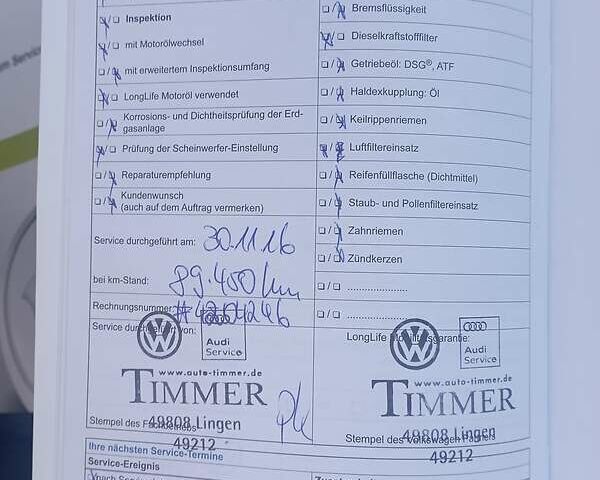 Inspektion
mit Motorölwechsel
mit erweitertem Inspektionsumfang
LongLife Motoröl verwendet
Korrosions- und Dichtheitsprüfung der Erd-
gasanlage
Prüfung der Scheinwerfer-Einstellung
Reparaturempfehlung
Kundenwunsch
(auch auf dem Auftrag vermerken)
Service durchgeführt am: 30.11.16
bei km-Stand: 89.400 km
Rechnungsnummer:
Service durchgeführt von:
Audi
Service
www.auto-timmer.de
TIMMER
Stempel des
49808 Lingen
49212
Bremsflüssigkeit
Dieselkraftstofffilter
Getriebeöl: DSG®, ATF
Haldexkupplung: Öl
Keilrippenriemen
Luftfiltereinsatz
Reifenfüllflasche (Dichtmittel)
Staub- und Pollenfiltereinsatz
Zahnriemen
Zündkerzen
.....................
.....................
LongLife Mobilitätsgarantie:
Audi
Service
www.auto-timmer.de
TIMMER
Stempel des Volkswagen Partners
49808 Lingen
49212
Ihre nächsten Service-Termine
Service-Ereignis